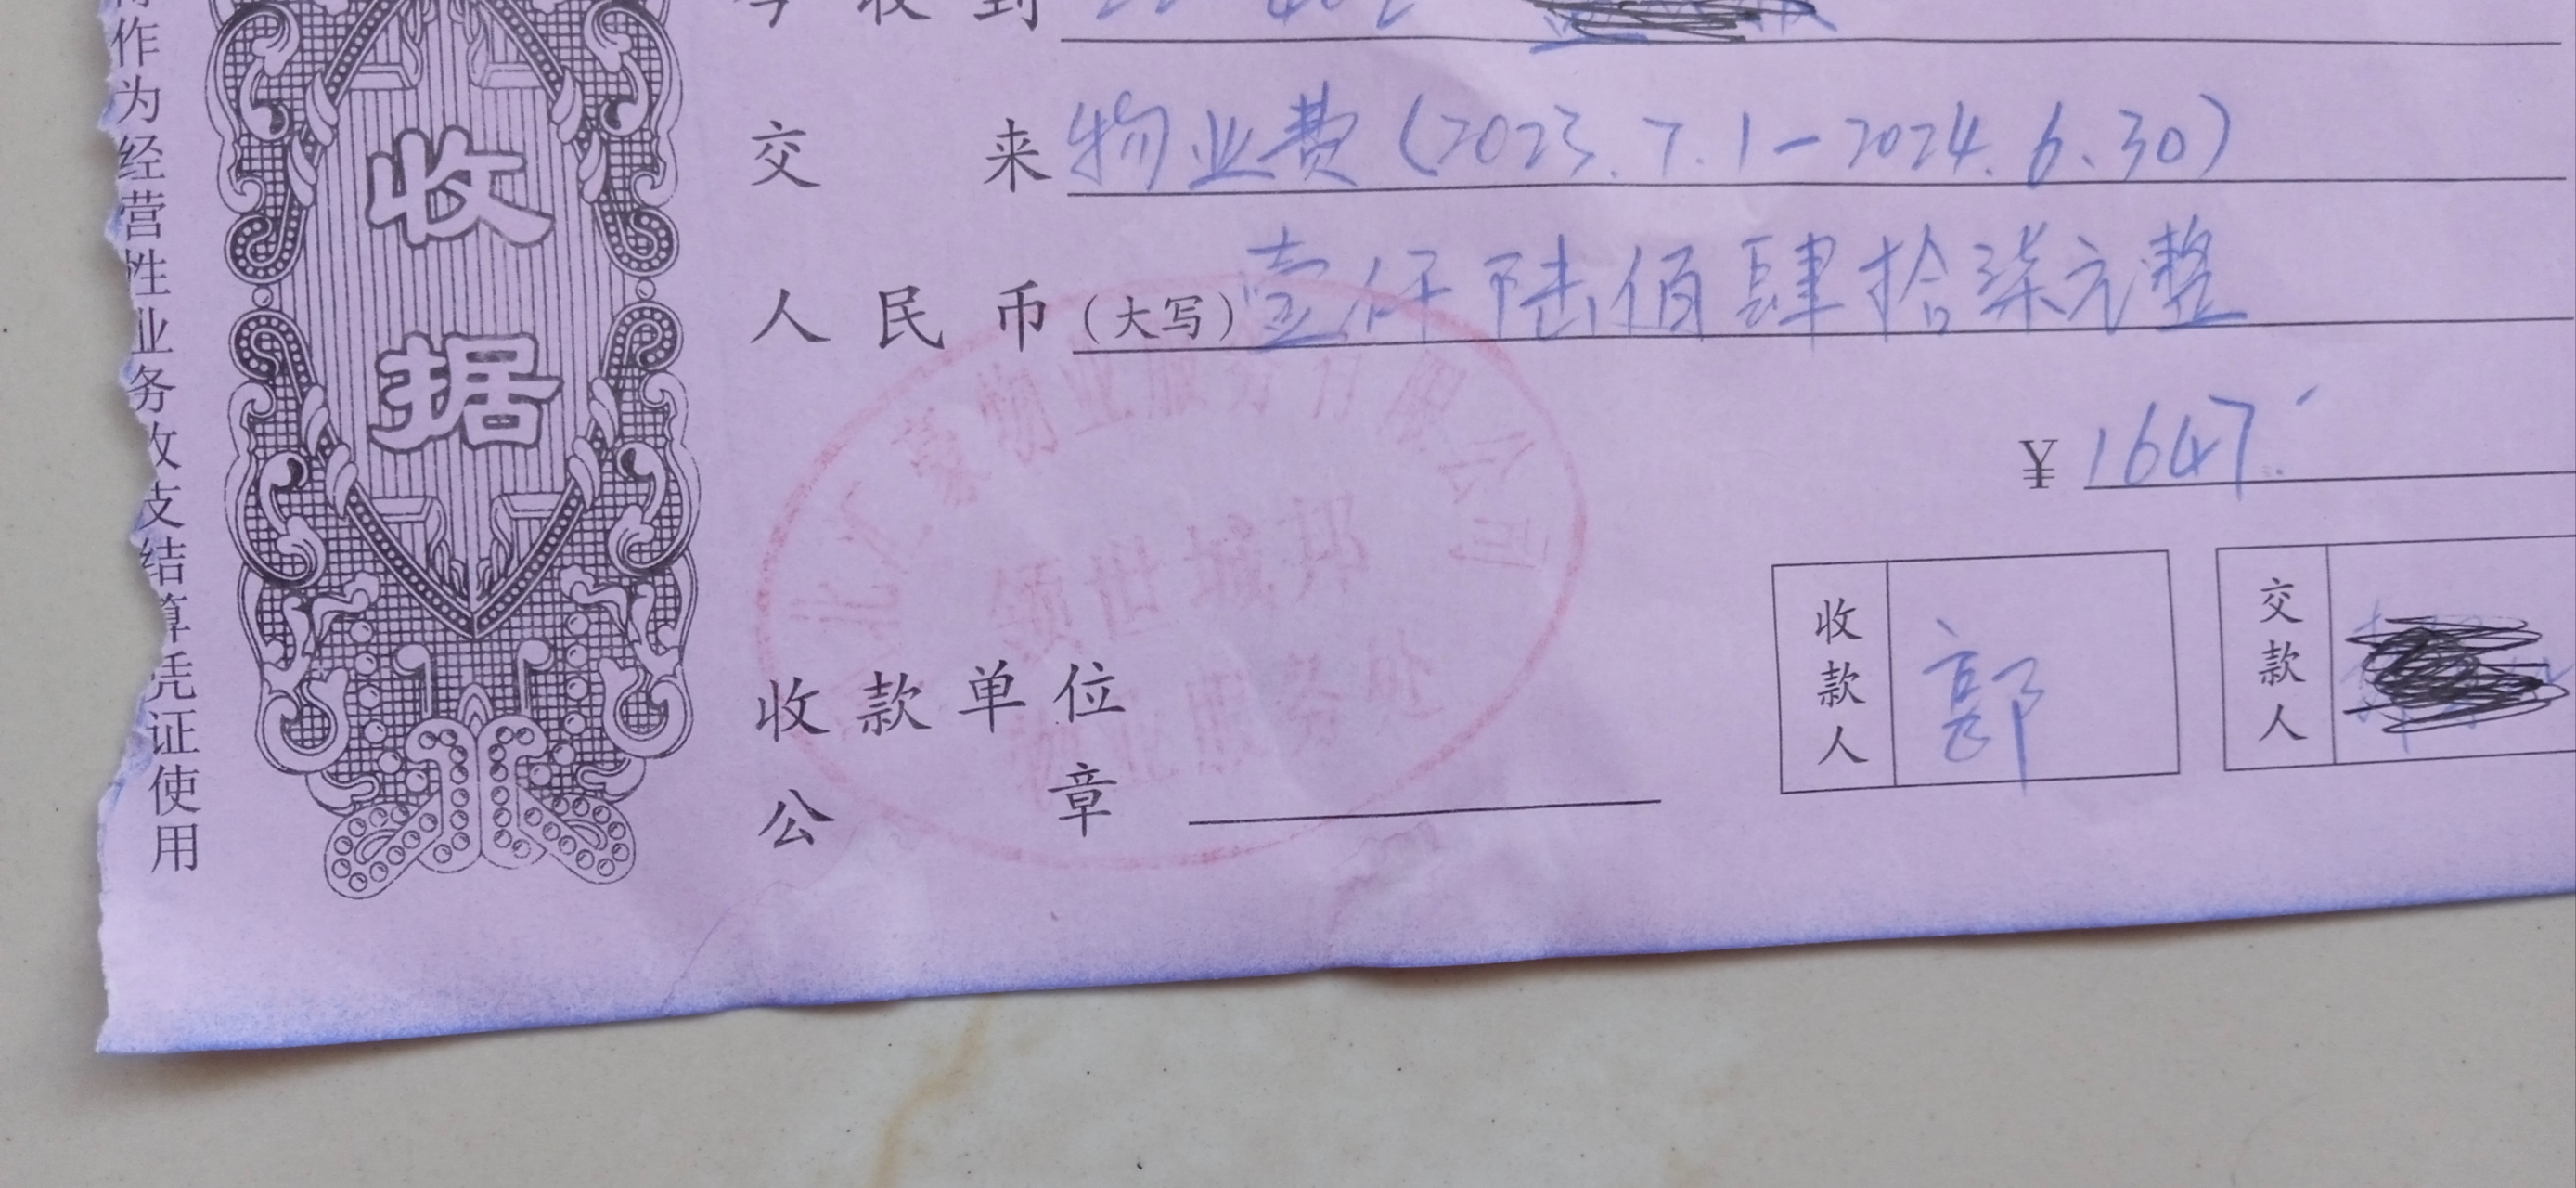 作为经营性业务收支结算凭证使用
收据
今收到
交来 物业费(2023.7.1-2024.6.30)
人民币(大写)壹仟陆佰肆拾柒元整
¥1647.
物业服务有限公司
领世城邦
物业服务处
收款单位
公章
收款人 郭
交款人